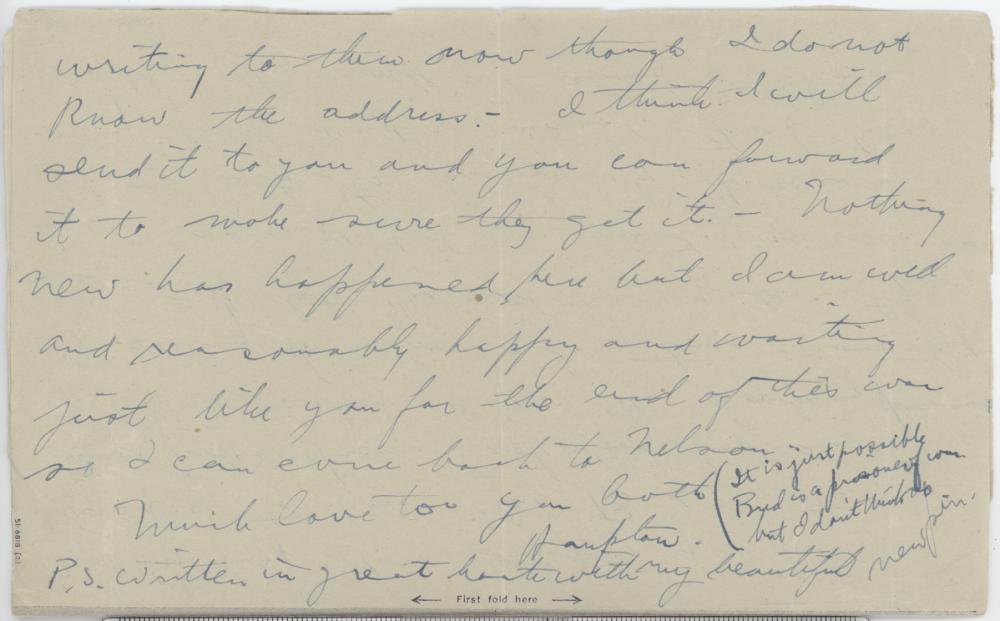 writing to them now though I do not
Know the address. - I think I will
send it to you and you can forward
it to make sure they get it. - Nothing
new has happened here but I am well
and reasonably happy and waiting
just like you for the end of this war
so I can come back to Nelson -
Much love too you both
Hampton.
(It is just possible
Bud is a prisoner of war
but I don't think so
P.S. written in great haste with my beautiful new pen.
← First fold here →